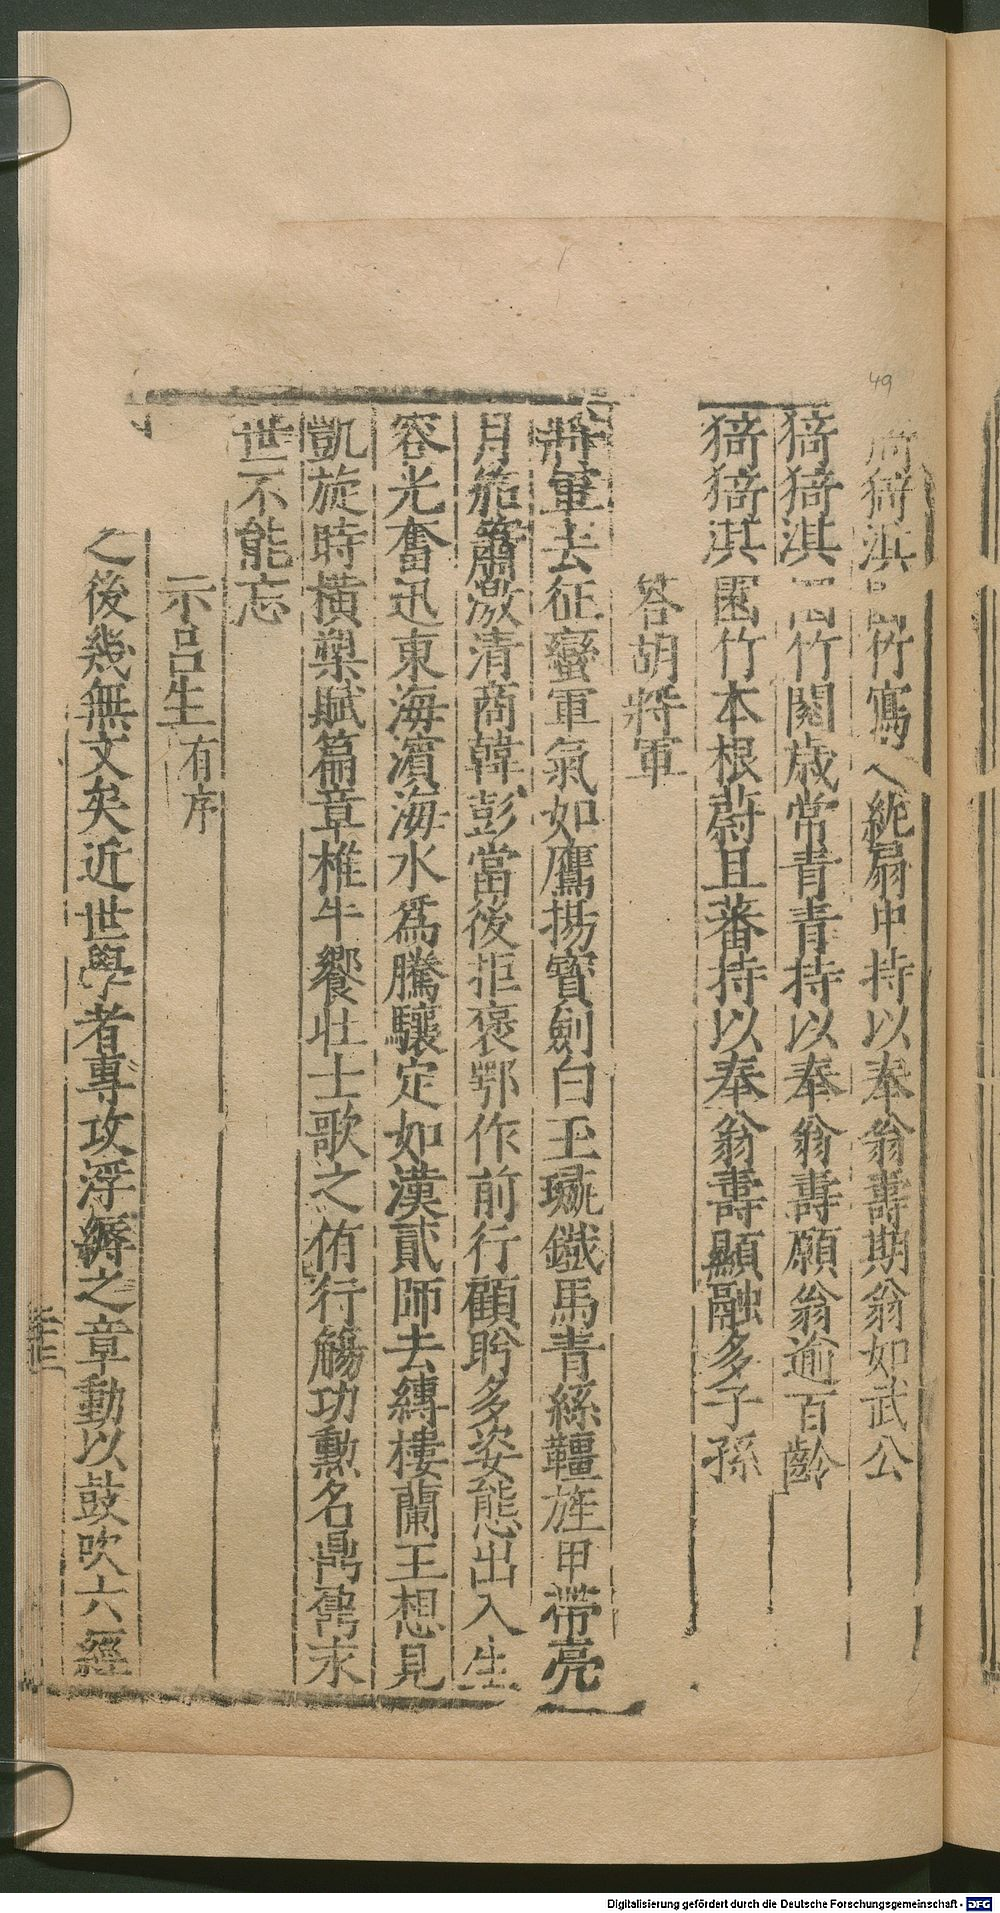 猗猗淇園竹寫入紈扇中持以奉翁壽期翁如武公
猗猗淇園竹閱歲常青青持以奉翁壽願翁逾百齡
猗猗淇園竹本根蔚且蕃持以奉翁壽顯融多子孫
答胡將軍
將軍去征蠻軍氣如鷹揚寶劍白玉瓏鐵馬青絲韁旌甲帶亮
月笳簫激清商韓彭當後拒褒鄂作前行顧盼多姿態出入生
容光奮迅東海濱海水爲騰驤定如漢貳師去縛樓蘭王想見
凱旋時橫槊賦篇章椎牛饗壯士歌之侑行觴功勳名鼎鼐求
世不能忘
示呂生有序
之後幾無文矣近世學者專攻浮縟之章動以鼓吹六經
49
Digitalisierung gefördert durch die Deutsche Forschungsgemeinschaft - DFG